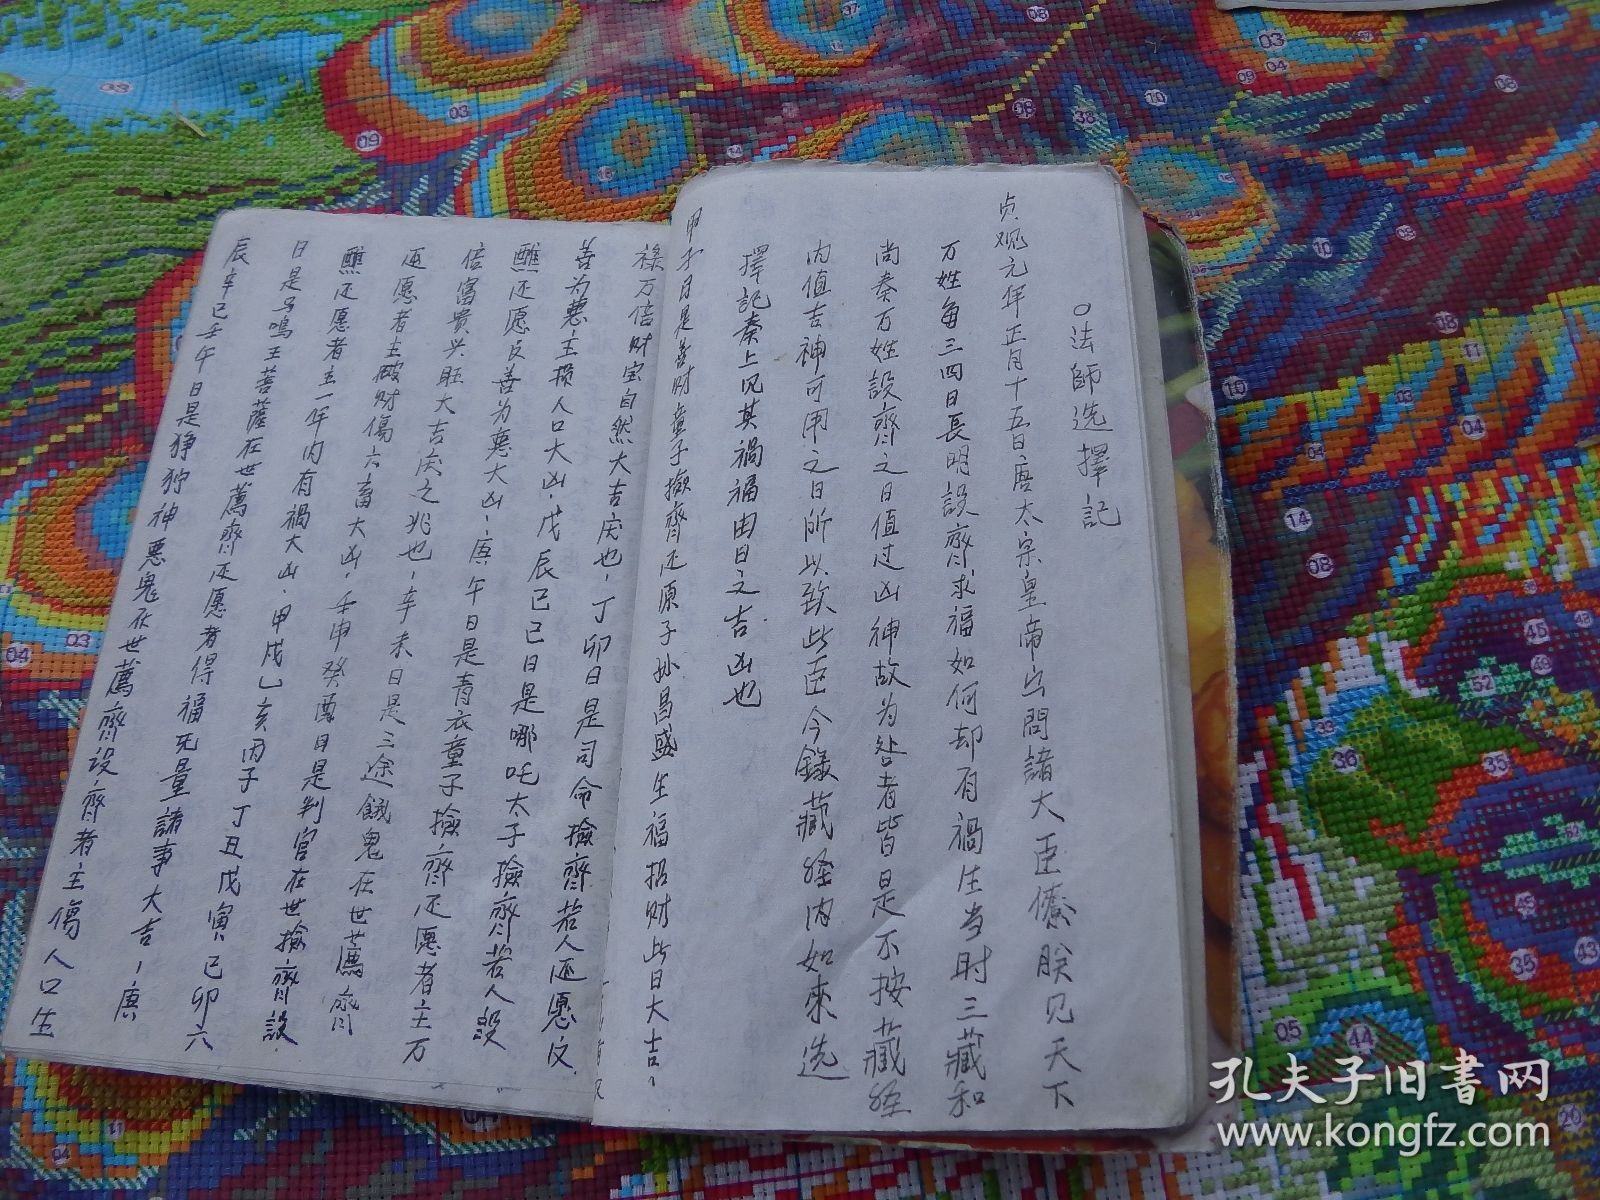 ○法師选擇記
贞观元年正月十五日唐太宗皇帝出問諸大臣僚朕见天下
万姓每三四日長明設齊求福如何却有禍生当时三藏和
尚奏万姓設齊之日值过凶神故为咎者皆日是不按藏经
内值吉神可用之日所以致此臣今錄藏经内如來选
擇記奏上风其禍福由日之吉凶也
甲子日是善财童子撿齊还原子孙昌盛生福招财此日大吉、
祿万倍财宝自然大吉庆也、丁卯日是司命撿齊若人还愿反
善为悪主损人口大凶、戊辰已已日是哪吒太子撿齊若人設
醮还愿反善为悪大凶、庚午日是青衣童子撿齊还愿者主万
倍富貴兴旺大吉庆之兆也、辛未日是三途餓鬼在世薦齊
还愿者主破财傷六畜大凶、壬申癸酉日是判官在世撿齊設
醮还愿者主一年内有禍大凶、甲戌乙亥丙子丁丑戊寅已卯六
日是马鳴王菩薩在世薦齊还愿者得福无量諸事大吉、庚
辰辛已壬午日是狰狞神悪鬼在世薦齊设齊者主傷人口生
孔夫子旧書网
www.kongfz.com